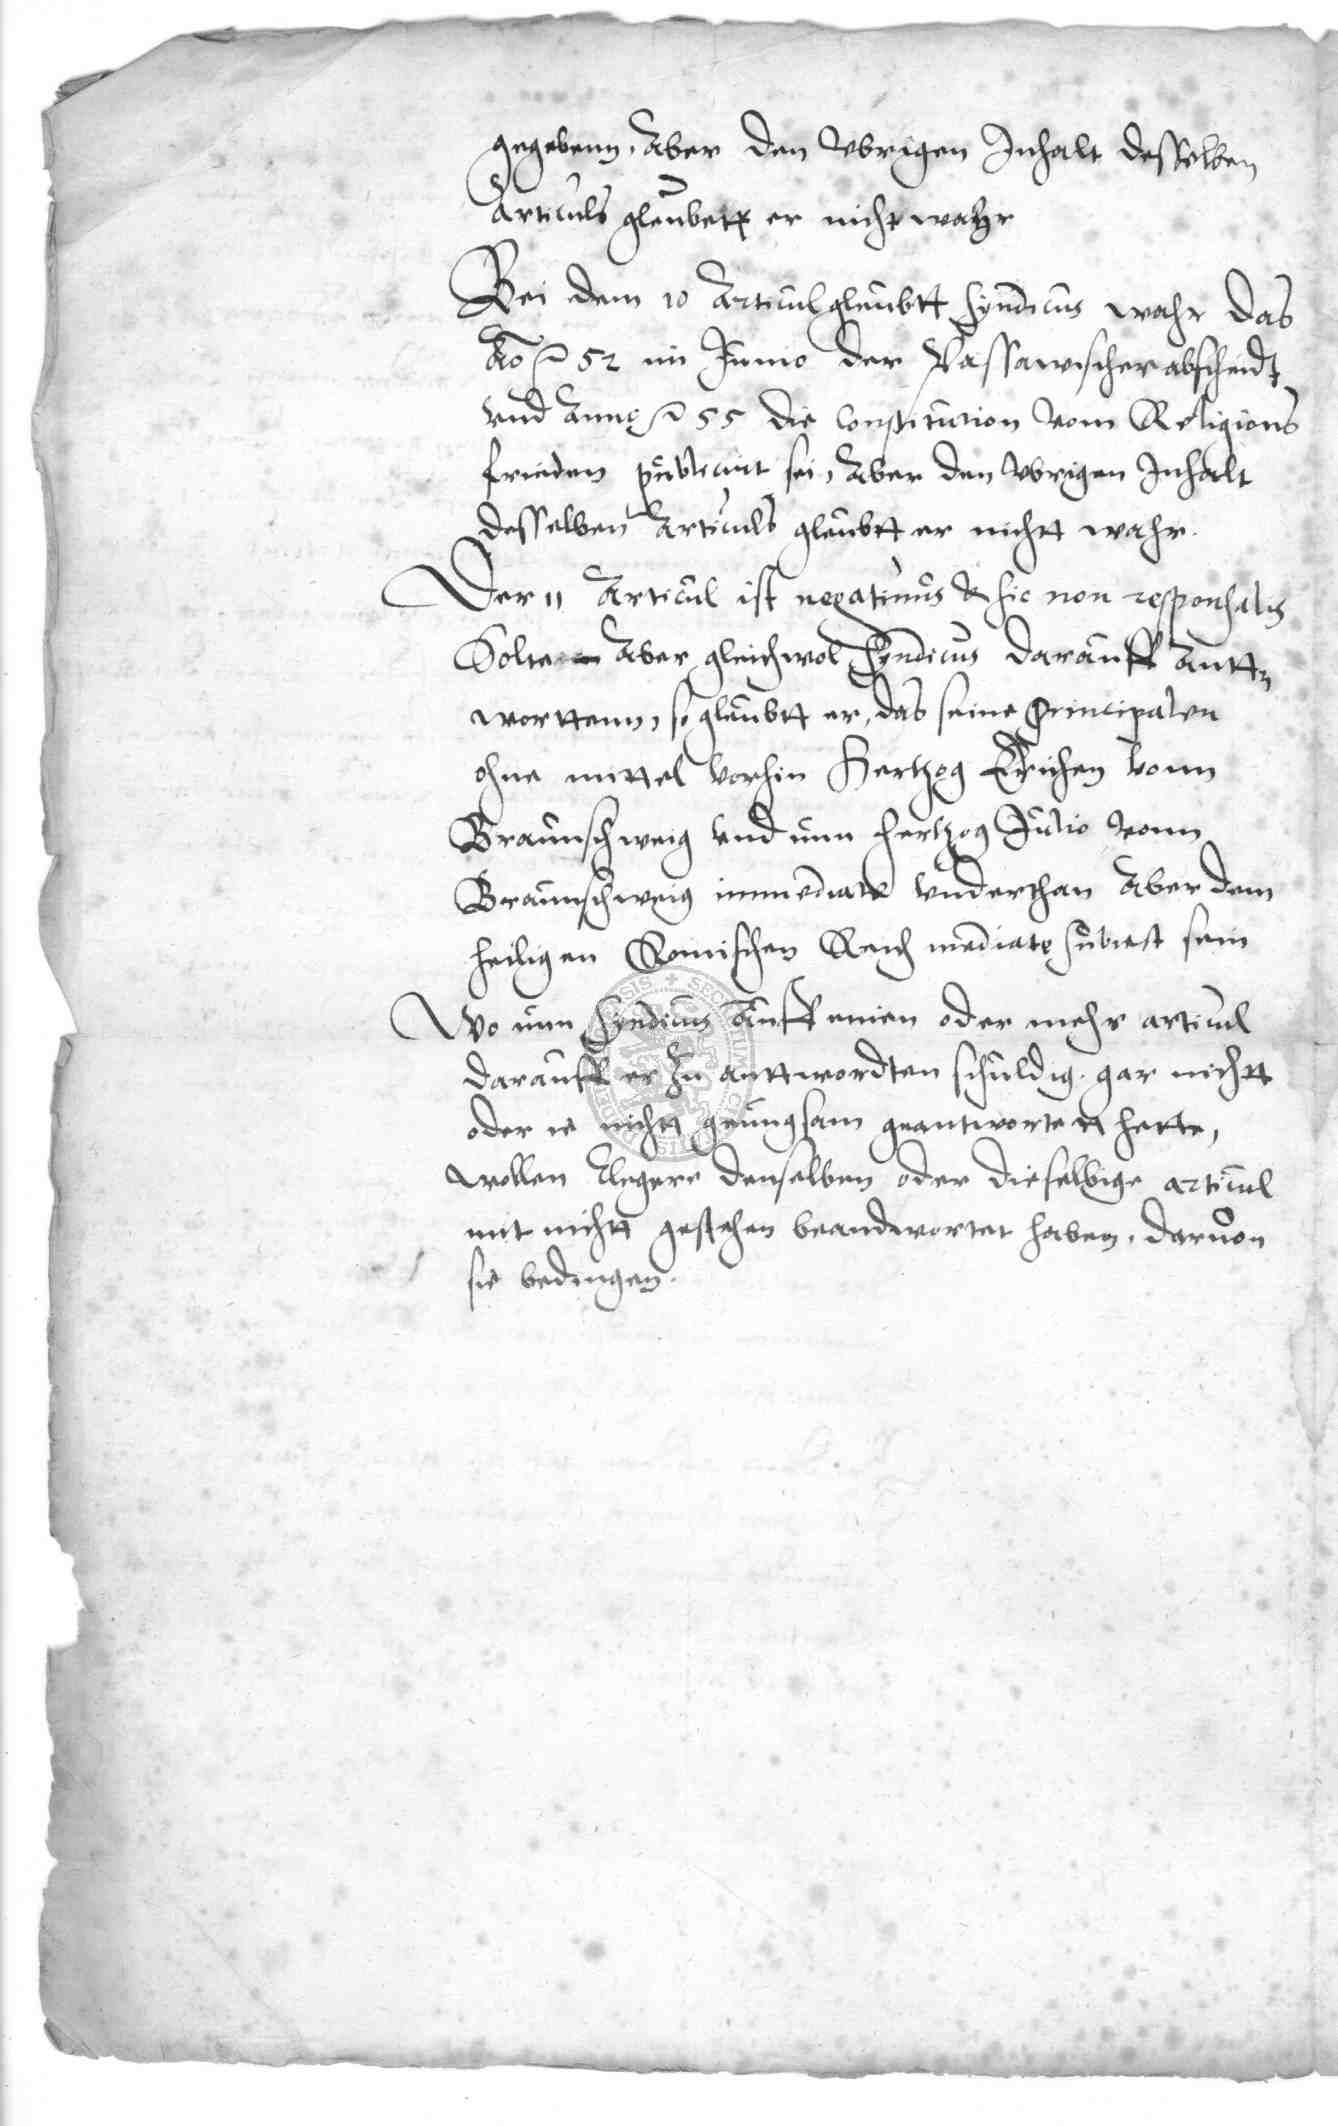 gegebenn, Aber den Vbrigen Inhalt desselben
Articuls gleubett er nicht wahr
Bei dem 10 Articul gleubtt Syndicus wahr das
Ao 52 im Junio der Passawischer abscheidt
vnd Anno 55 die Constitution vom Religions
frieden publicirt sei, Aber den Vbrigen Inhalt
desselben Articuls gleubtt er nichtt wahr.
Der 11 Articul ist negatiuus & sic non responsalis
Solte Aber gleichwol Syndicus darauff Antt-
worttenn, so gleubtt er, das seine Principalen
ohne mittel vorhin Hertzog Erichen vonn
Braunschweig vnd nun Hertzog Julio vonn
Braunschweig immediate vnderthan Aber dem
heiligen Romischen Reich mediate subiect sein
Wo nun Syndicus Auff einen oder mehr articul
darauff er zu anttwordten schuldig gar nichtt
oder ie nichtt gnungsam geantwortett hette,
wollen Clegere denselben oder dieselbige articul
mit nichtt gestehen beandwortet haben, daruon
sie bedingen.